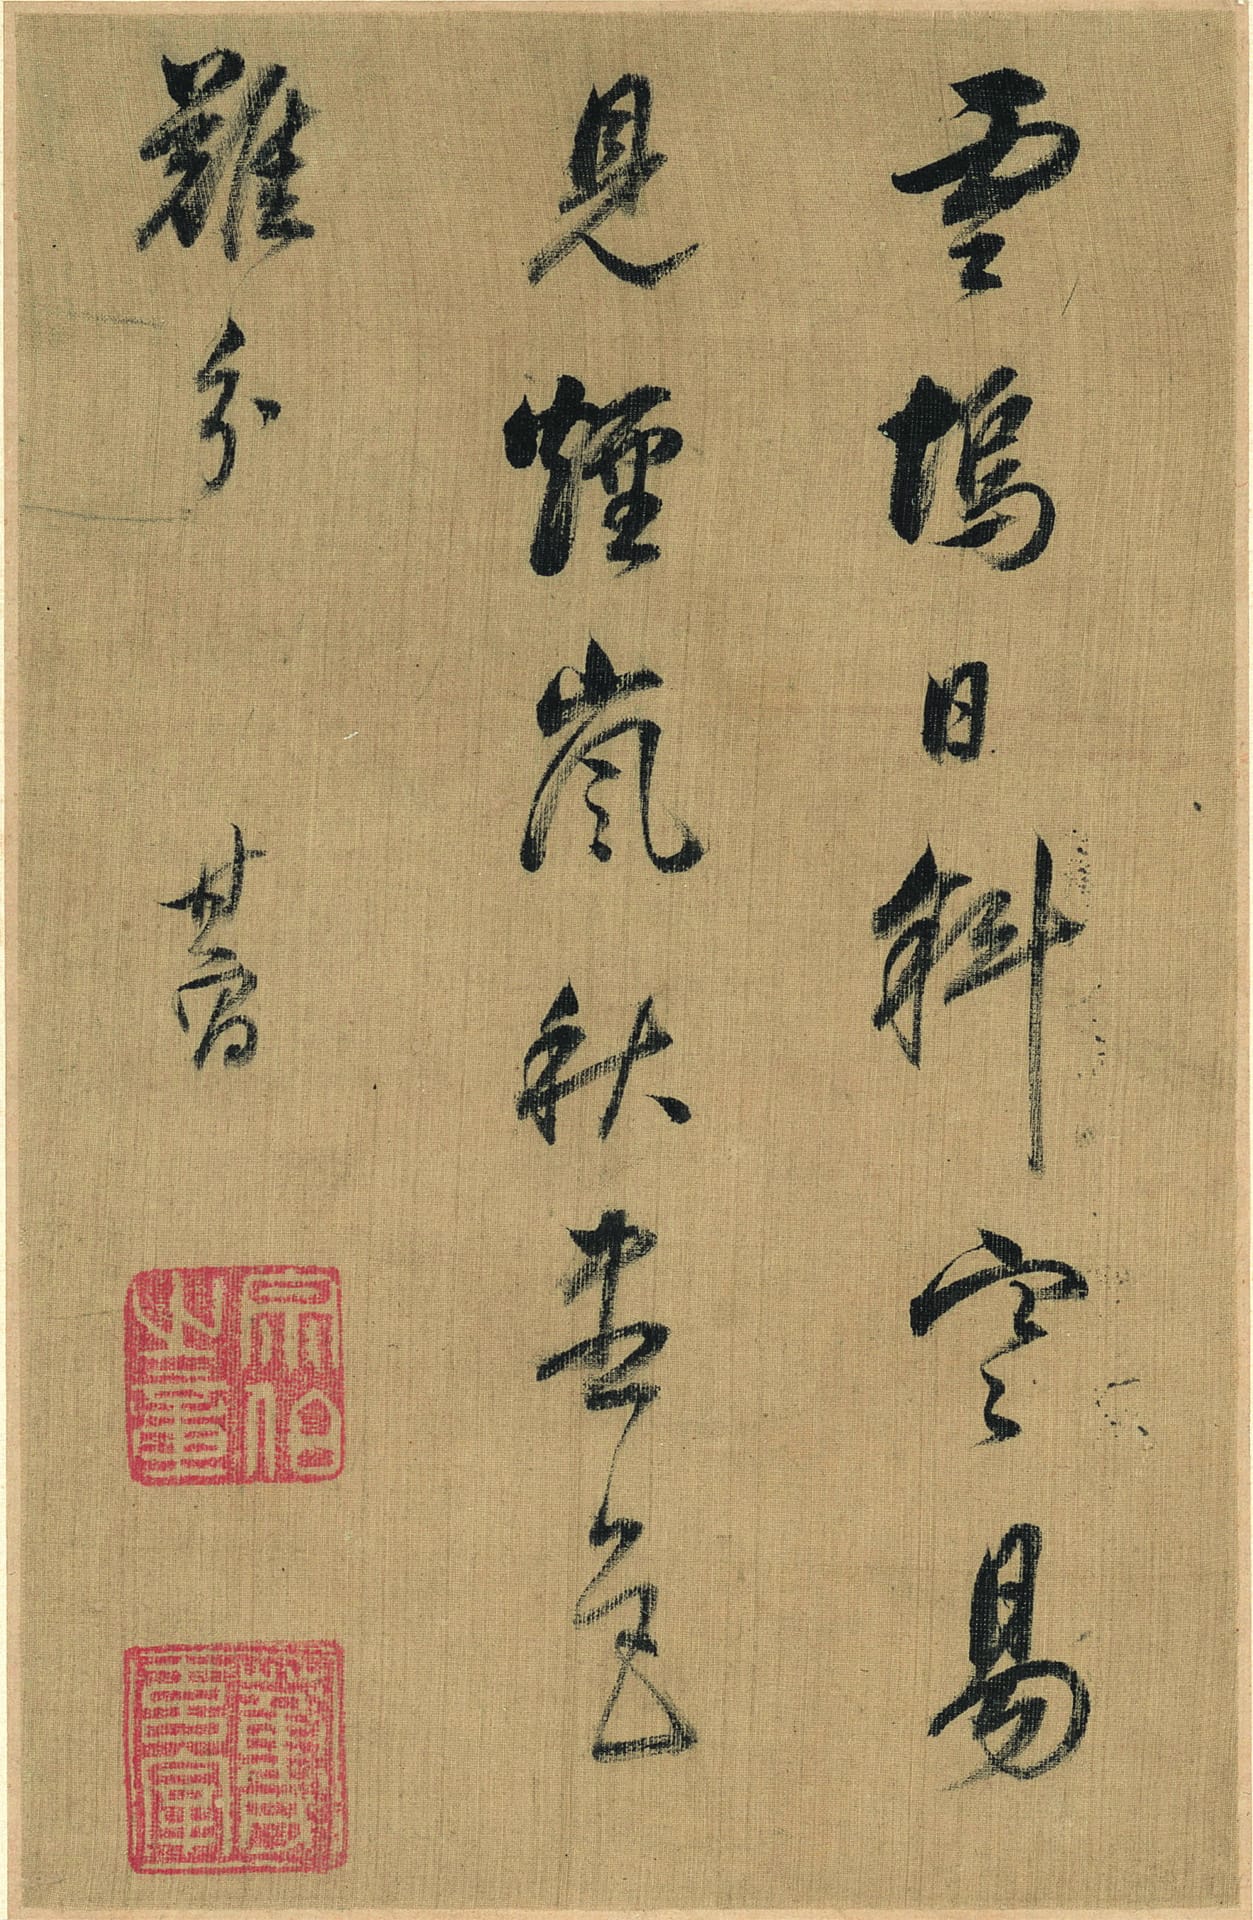 雲塢日斜空易
見煙嵐秋盡色
難分
其昌